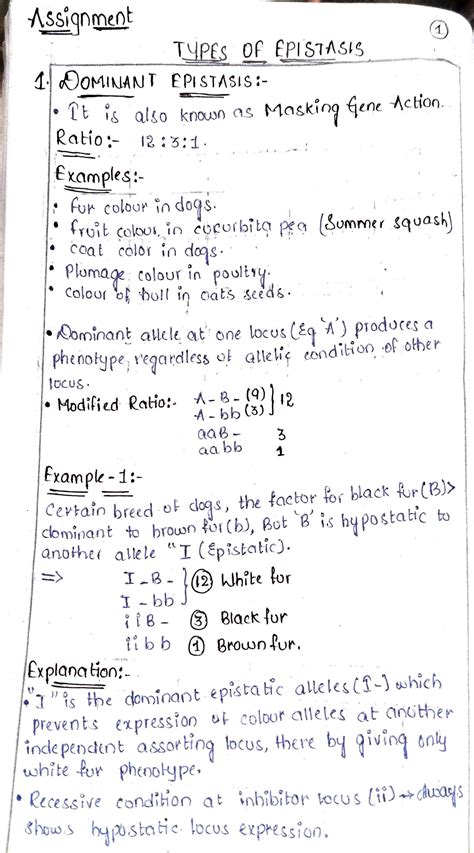 Assignment
1
TYPES OF EPISTASIS
1. DOMINANT EPISTASIS:-
• It is also known as Masking Gene Action.
Ratio:- 12:3:1.
Examples:-
• fur colour in dogs.
• fruit colour in cucurbita pea (Summer squash)
• coat color in dogs.
• Plumage colour in poultry.
• colour of hull in oats seeds.
• Dominant allele at one locus (Eg 'A') produces a
phenotype, regardless of allelic condition of other
locus.
• Modified Ratio:- A-B- (9) ] 12
A-bb (3)
aaB- 3
aabb 1
Example-1:-
Certain breed of dogs, the factor for black fur(B)>
dominant to brown fur(b), But 'B' is hypostatic to
another allele "I (Epistatic).
=> I-B- } 12 White fur
I-bb
iiB- 3 Black fur
iibb 1 Brown fur.
Explanation:-
• "I" is the dominant epistatic alleles (I-) which
prevents expression of colour alleles at another
independent assorting locus, there by giving only
white fur phenotype.
• Recessive condition at inhibitor locus (ii) → always
shows hypostatic locus expression.